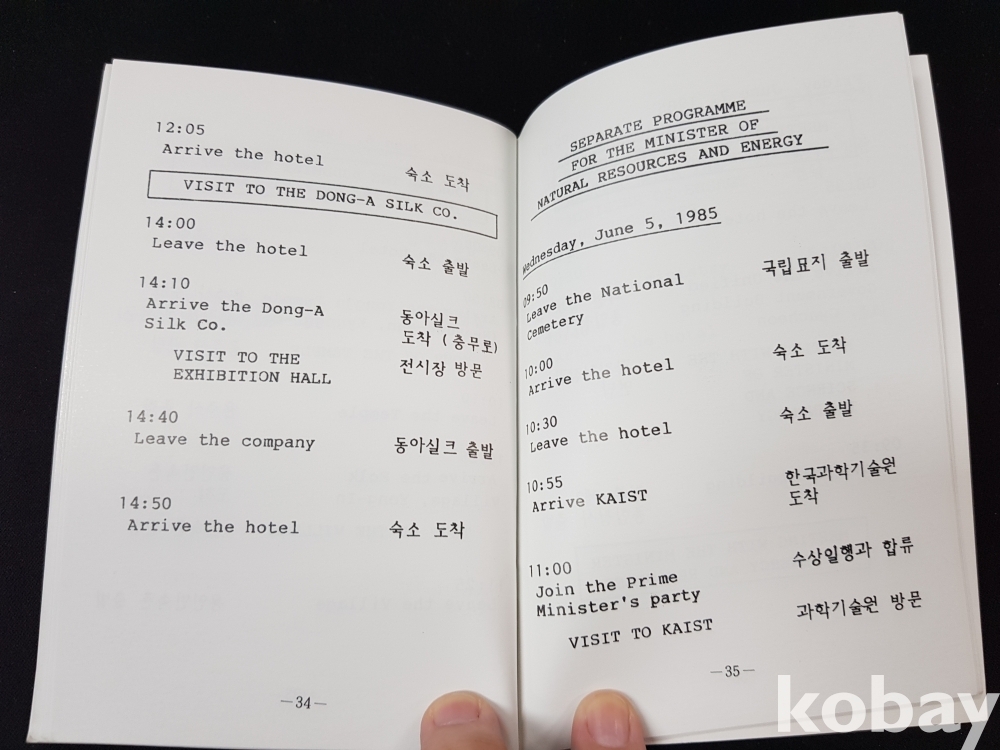 12:05
Arrive the hotel 숙소 도착
VISIT TO THE DONG-A SILK CO.
14:00
Leave the hotel 숙소 출발
14:10
Arrive the Dong-A 동아실크
Silk Co. 도착 (충무로)
VISIT TO THE 전시장 방문
EXHIBITION HALL
14:40
Leave the company 동아실크 출발
14:50
Arrive the hotel 숙소 도착
—34—
SEPARATE PROGRAMME
FOR THE MINISTER OF
NATURAL RESOURCES AND ENERGY
Wednesday, June 5, 1985
09:50
Leave the National 국립묘지 출발
Cemetery
10:00
Arrive the hotel 숙소 도착
10:30
Leave the hotel 숙소 출발
10:55
Arrive KAIST 한국과학기술원
도착
11:00
Join the Prime 수상일행과 합류
Minister's party
VISIT TO KAIST 과학기술원 방문
—35—
kobay